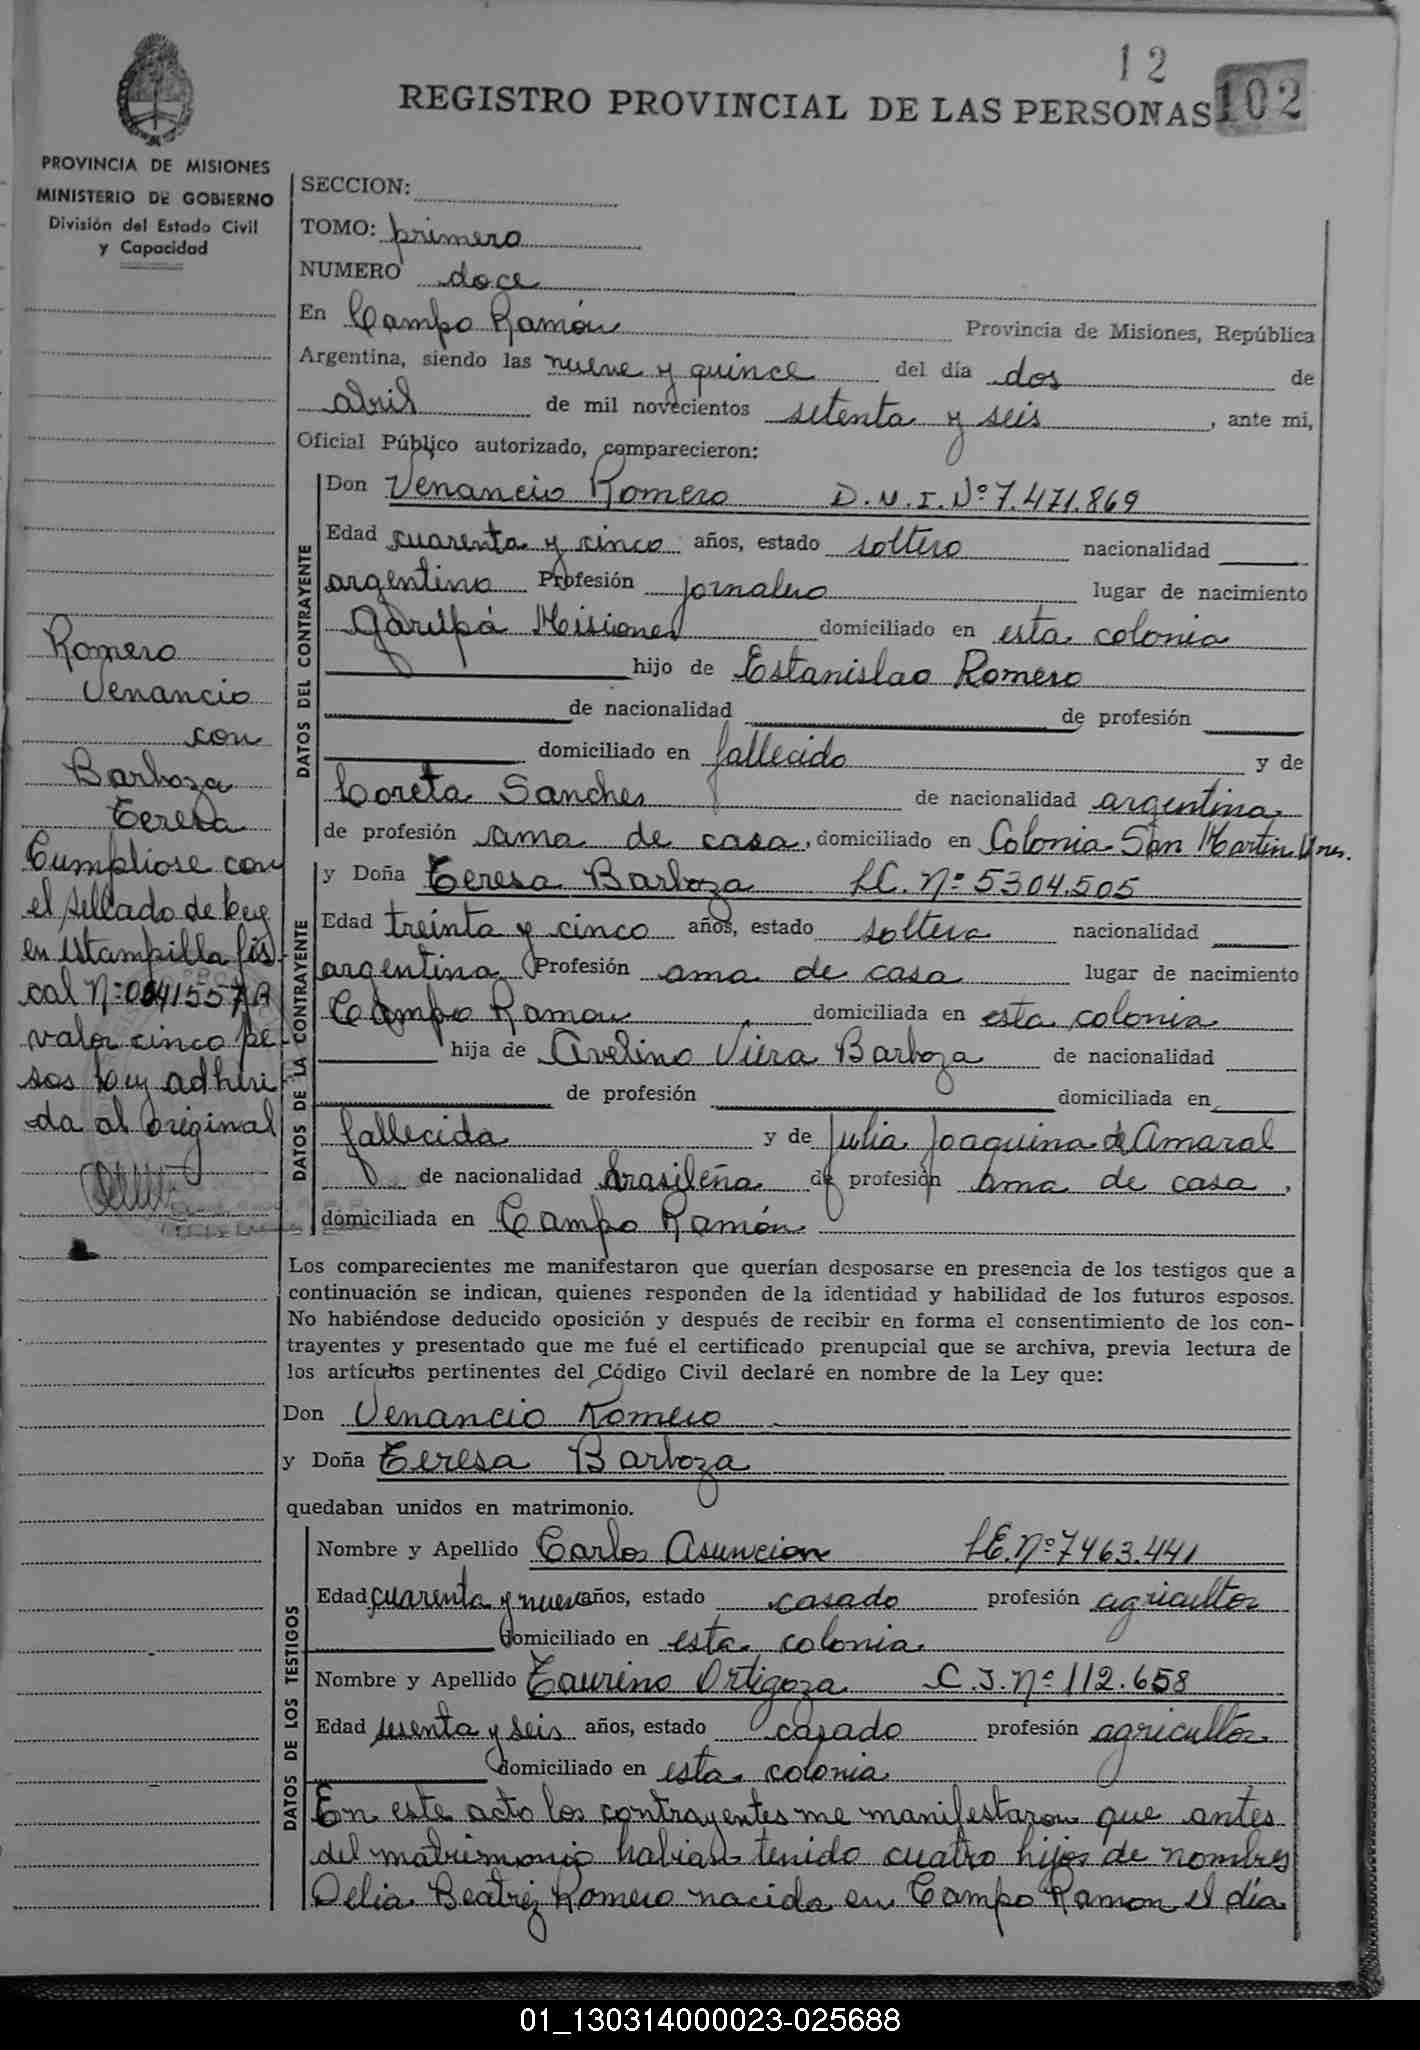 12
102
REGISTRO PROVINCIAL DE LAS PERSONAS
PROVINCIA DE MISIONES
MINISTERIO DE GOBIERNO
División del Estado Civil
y Capacidad
SECCION:
TOMO: primero
NUMERO doce
En Campo Ramón Provincia de Misiones, República
Argentina, siendo las nueve y quince del día dos de
abril de mil novecientos setenta y seis, ante mi,
Oficial Público autorizado, comparecieron:
DATOS DEL CONTRAYENTE
Don Venancio Romero D.N.I. Nº 7.471.869
Edad cuarenta y cinco años, estado soltero nacionalidad
argentino Profesión jornalero lugar de nacimiento
Garupá Misiones domiciliado en esta colonia
hijo de Estanislao Romero
de nacionalidad de profesión
domiciliado en fallecido y de
Loreta Sanches de nacionalidad argentina
de profesión ama de casa, domiciliado en Colonia San Martin Mnes.
DATOS DE LA CONTRAYENTE
y Doña Teresa Barboza LC. Nº 5304.505
Edad treinta y cinco años, estado soltera nacionalidad
argentina Profesión ama de casa lugar de nacimiento
Campo Ramon domiciliada en esta colonia
hija de Avelino Viera Barboza de nacionalidad
de profesión domiciliada en
fallecida y de Julia Joaquina de Amaral
de nacionalidad brasileña de profesión ama de casa,
domiciliada en Campo Ramón
Romero
Venancio
con
Barboza
Teresa
Cumpliose con
el sellado de ley
en estampilla fis
cal Nº 0041557A
valor cinco pe
sos ley adheri
da al original
Los comparecientes me manifestaron que querían desposarse en presencia de los testigos que a
continuación se indican, quienes responden de la identidad y habilidad de los futuros esposos.
No habiéndose deducido oposición y después de recibir en forma el consentimiento de los con-
trayentes y presentado que me fué el certificado prenupcial que se archiva, previa lectura de
los artículos pertinentes del Código Civil declaré en nombre de la Ley que:
Don Venancio Romero
y Doña Teresa Barboza
quedaban unidos en matrimonio.
DATOS DE LOS TESTIGOS
Nombre y Apellido Carlos Asuncion LE. Nº 7463.441
Edad cuarenta y nueve años, estado casado profesión agricultor
domiciliado en esta colonia
Nombre y Apellido Taurino Ortigoza C.I. Nº 112.658
Edad sesenta y seis años, estado casado profesión agricultor
domiciliado en esta colonia
En este acto los contrayentes me manifestaron que antes
del matrimonio habian tenido cuatro hijos de nombres
Delia Beatriz Romero nacida en Campo Ramon el día
01_130314000023-025688